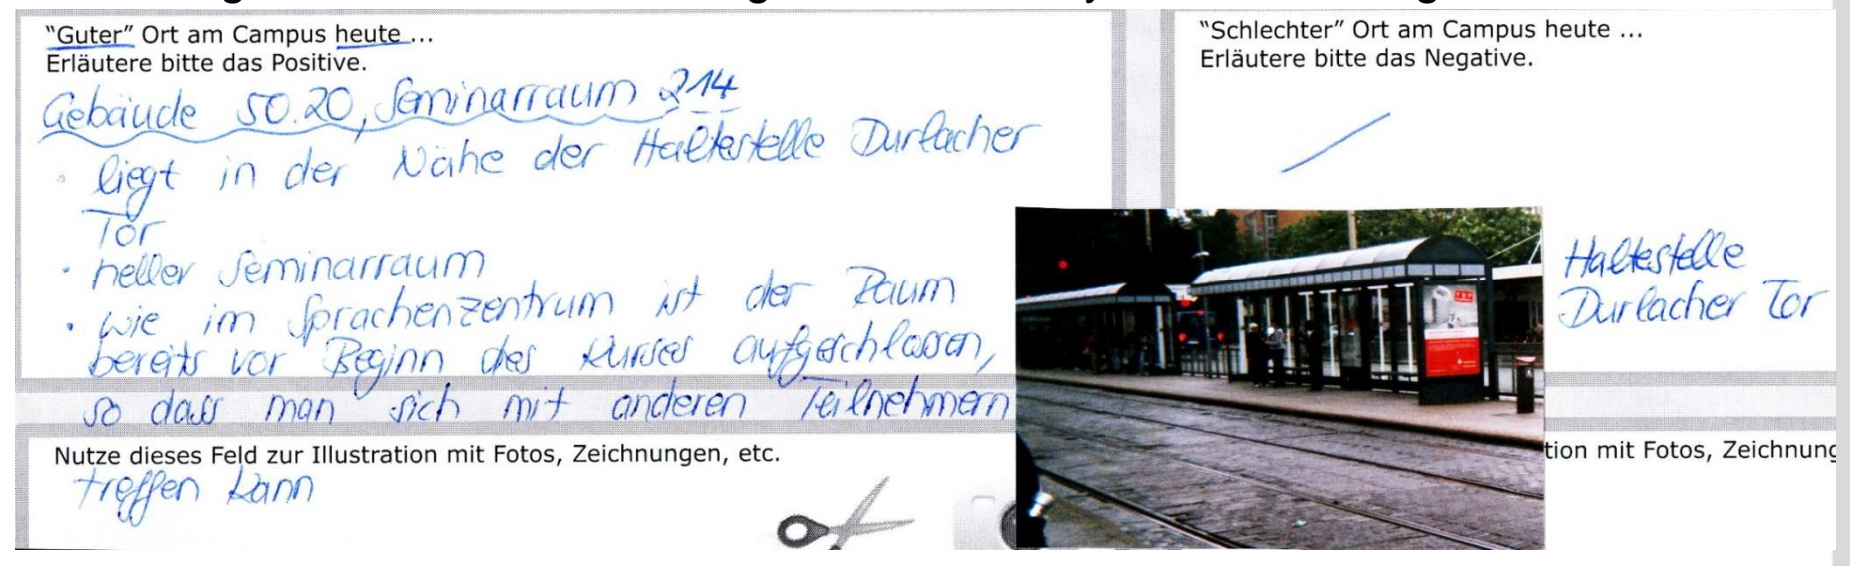 "Guter" Ort am Campus heute ...
Erläutere bitte das Positive.
Gebäude 50.20, Seminarraum 214
· liegt in der Nähe der Haltestelle Durlacher
Tor
· heller Seminarraum
· wie im Sprachenzentrum ist der Raum
bereits vor Beginn des Kurses aufgeschlossen,
so dass man sich mit anderen Teilnehmern
Nutze dieses Feld zur Illustration mit Fotos, Zeichnungen, etc.
treffen kann
"Schlechter" Ort am Campus heute ...
Erläutere bitte das Negative.
Haltestelle
Durlacher Tor
tion mit Fotos, Zeichnung